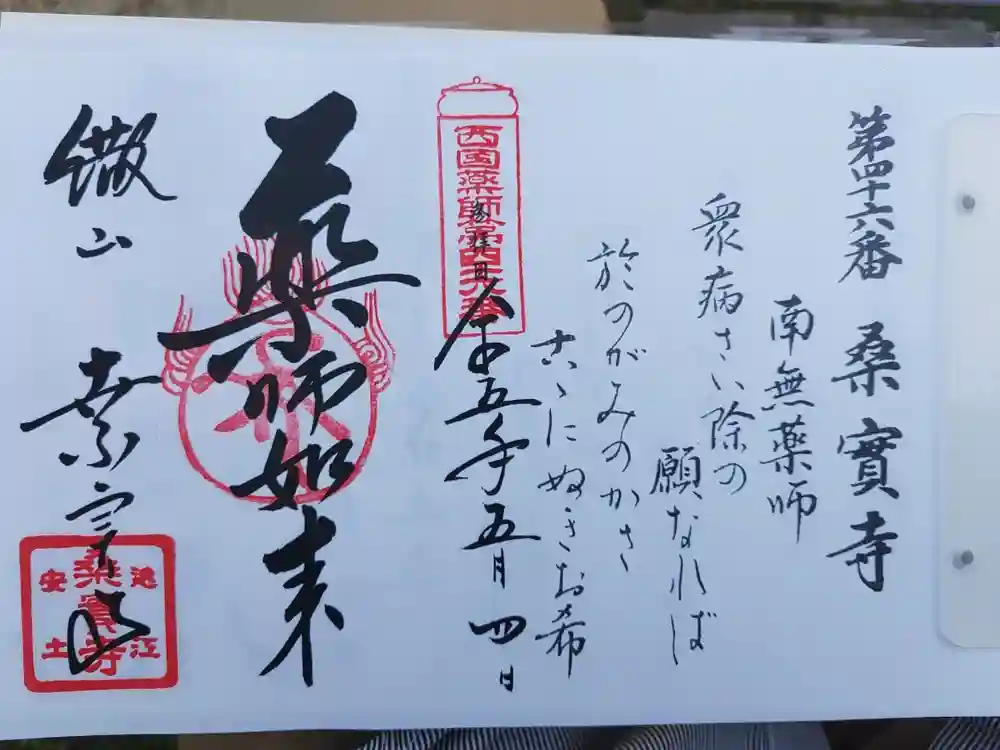 第四十六番 桑實寺
南無薬師
衆病さい除の
願なれば
於のがみのかさ
古ゝにぬきお希
西国薬師第四十六番
奉拝
令五年五月四日
薬師如来
繖山 桑宝寺
近江
桑實寺
安土